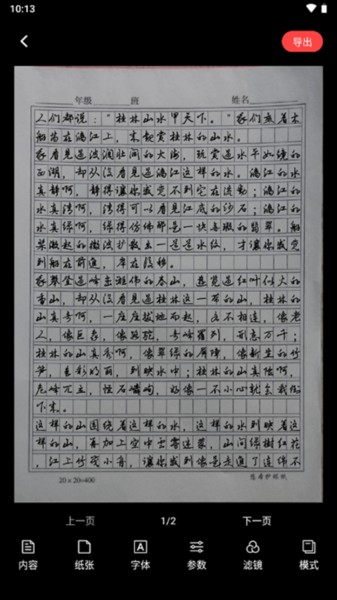 10:13
导出
年级 班 姓名
人们都说：“桂林山水甲天下。”我们乘着木
船荡在漓江上，来观赏桂林的山水。
我看见过波澜壮阔的大海，玩赏过水平如镜的
西湖，却从没看见过漓江这样的水。漓江的水
真静啊，静得让你感受不到它在流动；漓江的
水真清啊，清得可以看见江底的沙石；漓江的
水真绿啊，绿得仿佛那是一块无瑕的翡翠。船
桨激起的微波扩散出一道道水纹，才让你感觉
到船在前进，岸在后移。
我攀登过峰峦雄伟的泰山，游览过红叶似火的
香山，却从没看见过桂林这一带的山，桂林的
山真奇啊，一座座拔地而起，各不相连，像老
人，像巨象，像骆驼，奇峰罗列，形态万千；
桂林的山真秀啊，像翠绿的屏障，像新生的竹
笋，色彩明丽，倒映水中；桂林的山真险啊，
危峰兀立，怪石嶙峋，好像一不小心就会栽倒
下来。
这样的山围绕着这样的水，这样的水倒映着这
样的山，再加上空中云雾迷蒙，山间绿树红花
，江上竹筏小舟，让你感到像是走进了连绵不
20×20=400 护眼纸
上一页 1/2 下一页
内容 纸张 字体 参数 滤镜 模式